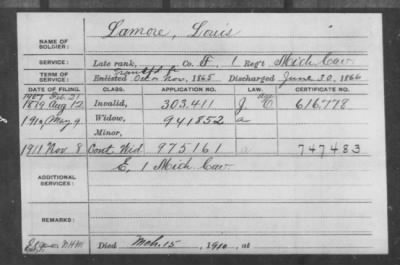 NAME OF SOLDIER: Lamore, Louis
SERVICE: Late rank, Co. F, 1 Reg't Mich Cav
TERM OF SERVICE: Enlisted Nov, 1865 Discharged June 30, 1866
DATE OF FILING. CLASS. APPLICATION NO. LAW. CERTIFICATE NO.
1879 Aug 12 Invalid, 303.411 616778
1910, May 9. Widow, 941852 a
Minor,
1911 Nov 8 Cont. Wid. 975161 a 747483
E, 1 Mich Cav.
ADDITIONAL SERVICES:
REMARKS:
Died Mch. 15, 1910, at